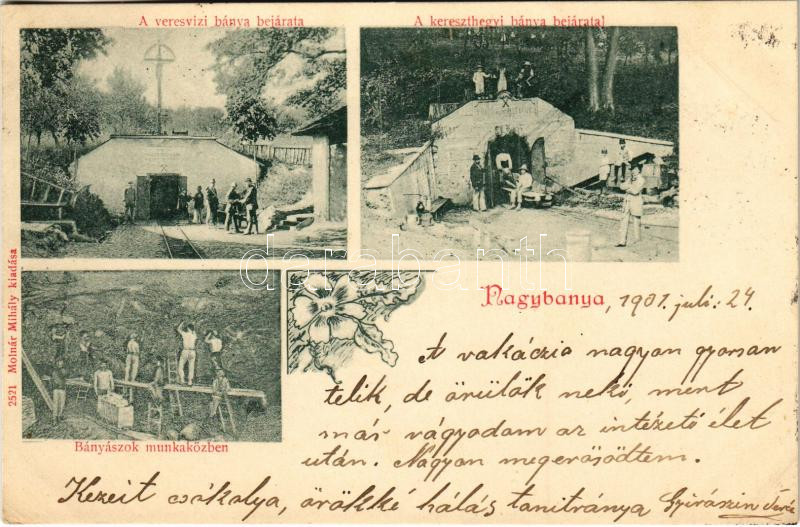 A veresvizi bánya bejárata
A kereszthegyi bánya bejárata!
2521 Molnár Mihály kiadása
darabanth
Nagybanya, 1901. juli: 24.
A vakáczió nagyon gyorsan
telik, de örülök neki, mert
már vágyodom az intézeti élet
után. Nagyon megerősödtem.
Bányászok munkaközben
Kezeit csókolja, örökké hálás tanitványa